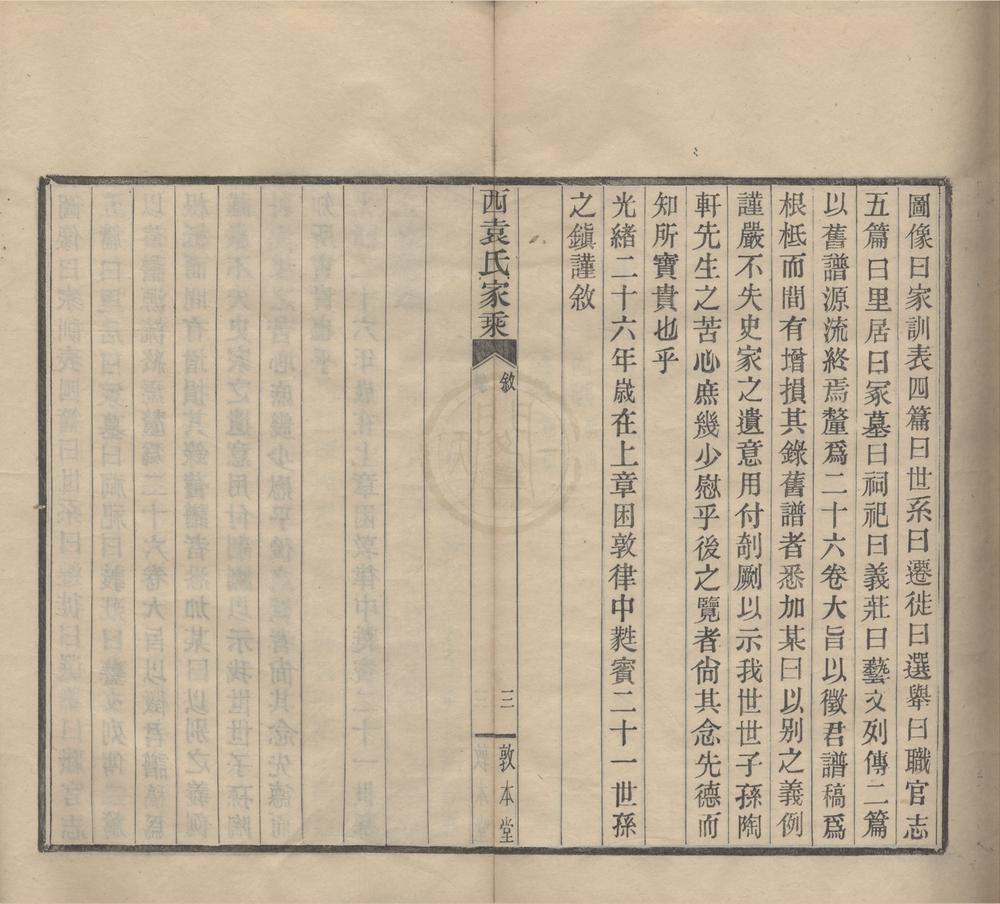 圖像曰家訓表四篇曰世系曰遷徙曰選舉曰職官志
五篇曰里居曰冢墓曰祠祀曰義莊曰藝文列傳二篇
以舊譜源流終焉釐爲二十六卷大旨以徵君譜稿爲
根柢而間有增損其錄舊譜者悉加某曰以別之義例
謹嚴不失史家之遺意用付剞劂以示我世世子孫陶
軒先生之苦心庶幾少慰乎後之覽者尙其念先德而
知所寶貴也乎
光緒二十六年歲在上章困敦律中蕤賓二十一世孫
之鎭謹敘
西袁氏家乘
敘
三
敦本堂